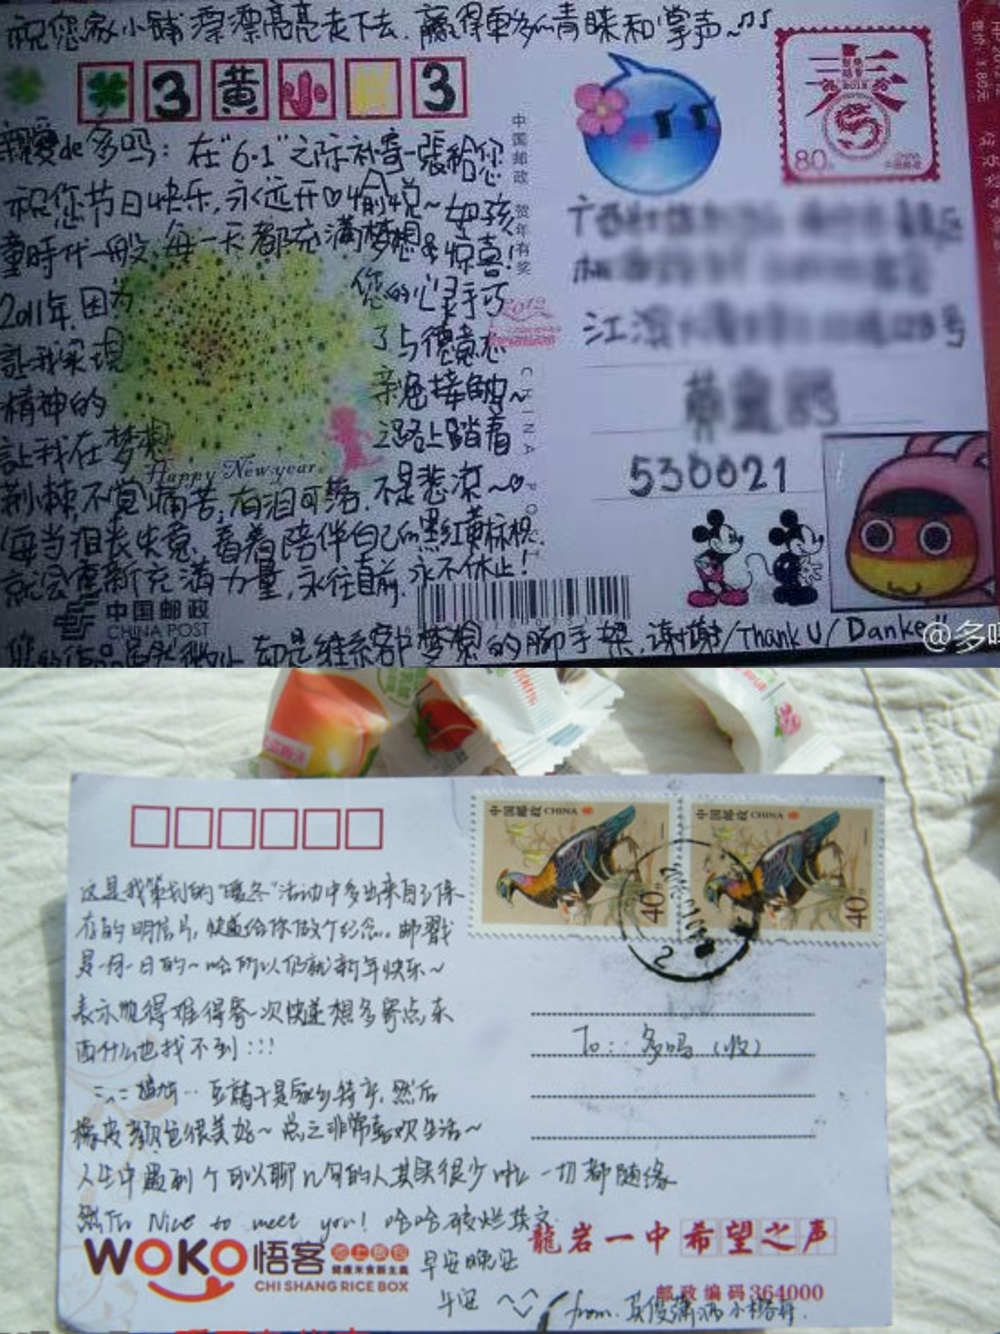 祝您家小铺漂漂亮亮走下去,赢得更多的青睐和掌声~
3 黄 小 3
親愛de多吗:在"6·1"之际补寄一張給您
祝您节日快乐,永远开♡愉悦~如孩
童時代一般,每一天都充满梦想&惊喜!
2011年,因为
您的心灵手巧
让我实现
了与德意志
精神的
亲密接触~
让我在梦想
之路上踏着
Happy New year
荆棘,不觉痛苦,有泪可落,不是悲凉~♡
每当沮丧失意,看着陪伴自己的黑红黄标枧
就会重新充满力量,永往直前,永不休止!
中国邮政
CHINA POST
却是维系客邸梦想的脚手架,谢谢/Thank U/Danke!!
中国邮政 贺年有奖
2012
80分
广西
江滨
号
530021
@多
这是我策划的"暖冬"活动中多出来自己保
存的明信片,快递给你做个纪念。邮戳
是一月一日的~哈所以仍就新年快乐~
表示觉得难得寄一次快递想多寄点东
西什么也找不到!!!
豆腐干是家乡特产,然后
橡皮颜色很美好~总之非常喜欢生活~
人生中遇到个可以聊几句的人其实很少啦 一切都随缘
然后 Nice to meet you! 哈哈破烂英文
早安晚安
午安
中国邮政 CHINA
40分
中国邮政 CHINA
40分
To: 多吗(收)
WOKO 悟客
CHI SHANG RICE BOX
龍岩一中希望之声
邮政编码364000
from